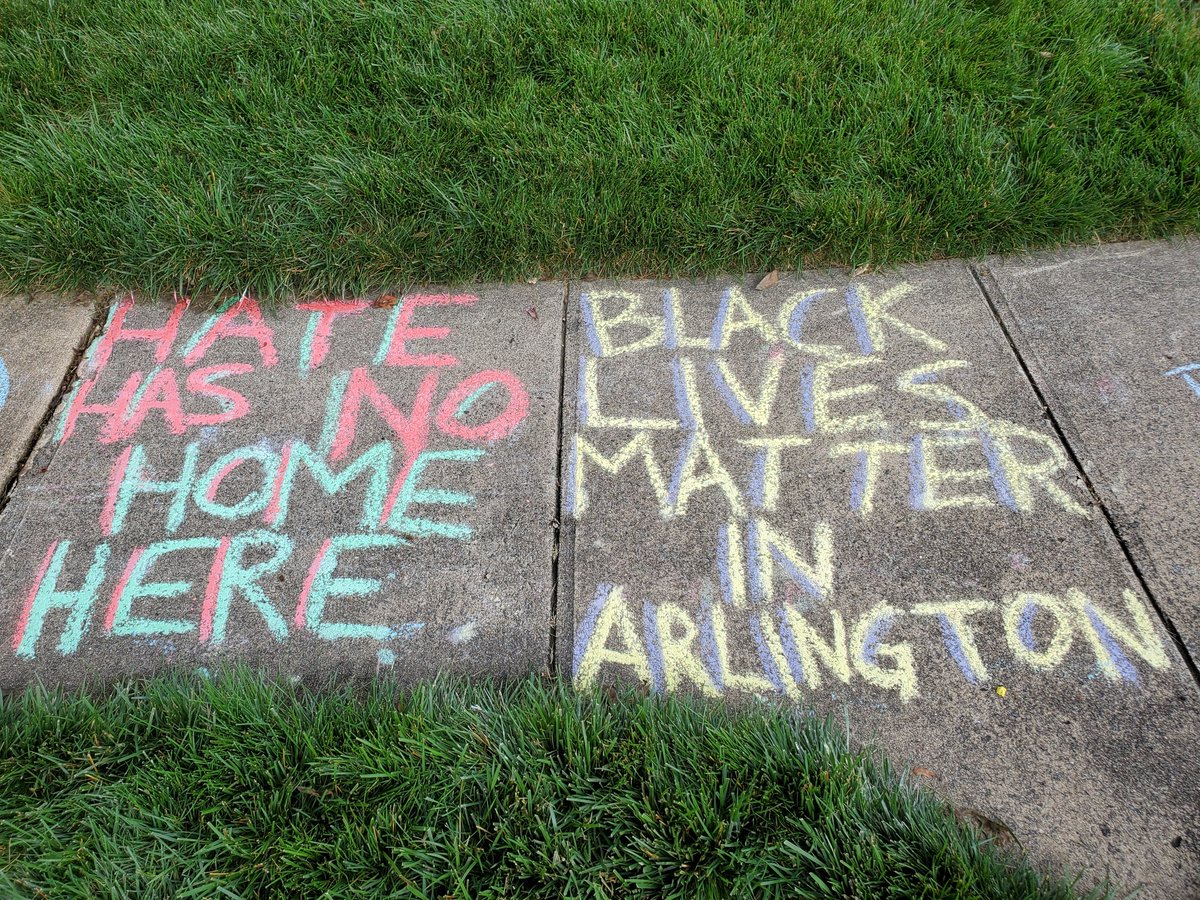 HATE
HAS NO
HOME
HERE
BLACK
LIVES
MATTER
IN
ARLINGTON